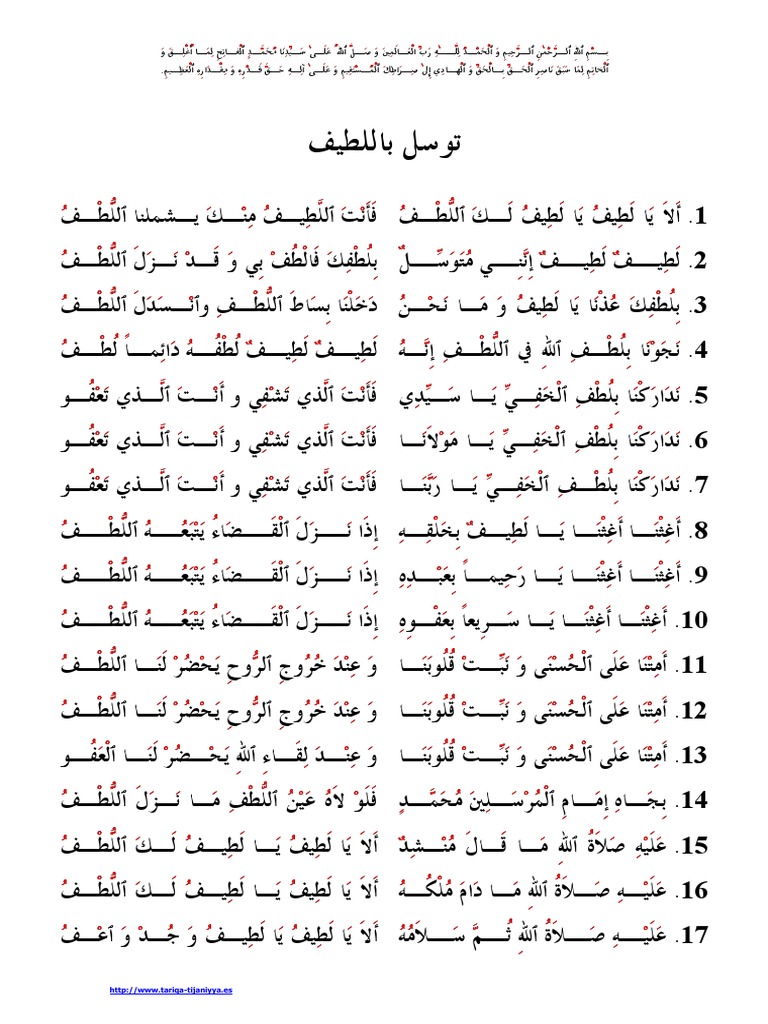 بِسْمِ اللهِ الرَّحْمٰنِ الرَّحِيمِ وَ ٱلْحَمْدُ لِلَّهِ رَبِّ ٱلْعَالَمِينَ وَ صَلَّ اللهُ عَلَىٰ سَيِّدِنَا مُحَمَّدٍ ٱلْفَاتِحِ لِمَا أُغْلِقَ وَ
ٱلْخَاتِمِ لِمَا سَبَقَ نَاصِرِ ٱلْحَقِّ بِالْحَقِّ وَ ٱلْهَادِي إِلَىٰ صِرَاطِكَ ٱلْمُسْتَقِيمِ وَ عَلَىٰ آلِهِ حَقَّ قَدْرِهِ وَ مِقْدَارِهِ ٱلْعَظِيمِ.
توسل باللطيف
1. أَلاَ يَا لَطِيفُ يَا لَطِيفُ لَكَ ٱللُّطْفُ فَأَنْتَ ٱللَّطِيفُ مِنْكَ يشملنا ٱللُّطْفُ
2. لَطِيفٌ لَطِيفٌ إِنَّنِي مُتَوَسِّلٌ بِلُطْفِكَ فَالْطُفْ بِي وَ قَدْ نَزَلَ ٱللُّطْفُ
3. بِلُطْفِكَ عُذْنَا يَا لَطِيفُ وَ مَا نَحْنُ دَخَلْنَا بِسَاطَ ٱللُّطْفِ وٱنْسَدَلَ ٱللُّطْفُ
4. نَجَوْنَا بِلُطْفِ اللهِ فِي ٱللُّطْفِ إِنَّهُ لَطِيفٌ لَطِيفٌ لُطْفُهُ دَائِماً لُطْفُ
5. نَدَارَكْنَا بِلُطْفِ ٱلْخَفِيِّ يَا سَيِّدِي فَأَنْتَ ٱلَّذِي تَشْفِي و أَنْتَ ٱلَّذِي تَعْفُو
6. نَدَارَكْنَا بِلُطْفِ ٱلْخَفِيِّ يَا مَوْلاَنَا فَأَنْتَ ٱلَّذِي تَشْفِي و أَنْتَ ٱلَّذِي تَعْفُو
7. نَدَارَكْنَا بِلُطْفِ ٱلْخَفِيِّ يَا رَبَّنَا فَأَنْتَ ٱلَّذِي تَشْفِي و أَنْتَ ٱلَّذِي تَعْفُو
8. أَغِثْنَا أَغِثْنَا يَا لَطِيفٌ بِخَلْقِهِ إِذَا نَزَلَ ٱلْقَضَاءُ يَتْبَعُهُ ٱللُّطْفُ
9. أَغِثْنَا أَغِثْنَا يَا رَحِيماً بِعَبْدِهِ إِذَا نَزَلَ ٱلْقَضَاءُ يَتْبَعُهُ ٱللُّطْفُ
10. أَغِثْنَا أَغِثْنَا يَا سَرِيعاً بِعَفْوِهِ إِذَا نَزَلَ ٱلْقَضَاءُ يَتْبَعُهُ ٱللُّطْفُ
11. أَمِتْنَا عَلَى ٱلْحُسْنَى وَ نَبِّتْ قُلُوبَنَا وَ عِنْدَ خُرُوجِ ٱلرُّوحِ يَحْضُرْ لَنَا ٱللُّطْفُ
12. أَمِتْنَا عَلَى ٱلْحُسْنَى وَ نَبِّتْ قُلُوبَنَا وَ عِنْدَ خُرُوجِ ٱلرُّوحِ يَحْضُرْ لَنَا ٱللُّطْفُ
13. أَمِتْنَا عَلَى ٱلْحُسْنَى وَ نَبِّتْ قُلُوبَنَا وَ عِنْدَ لِقَاءِ اللهِ يَحْضُرْ لَنَا ٱلْعَفُو
14. بِجَاهِ إِمَامِ ٱلْمُرْسَلِينَ مُحَمَّدٍ فَلَوْ لاَهُ عَيْنُ ٱللُّطْفِ مَا نَزَلَ ٱللُّطْفُ
15. عَلَيْهِ صَلاَةُ اللهِ مَا قَالَ مُنْشِدٌ أَلاَ يَا لَطِيفُ يَا لَطِيفُ لَكَ ٱللُّطْفُ
16. عَلَيْهِ صَلاَةُ اللهِ مَا دَامَ مُلْكُهُ أَلاَ يَا لَطِيفُ يَا لَطِيفُ لَكَ ٱللُّطْفُ
17. عَلَيْهِ صَلاَةُ اللهِ ثُمَّ سَلاَمُهُ أَلاَ يَا لَطِيفُ يَا لَطِيفُ وَ جُدْ وَ ٱعْفُ
http://www.tariqa-tijaniyya.es